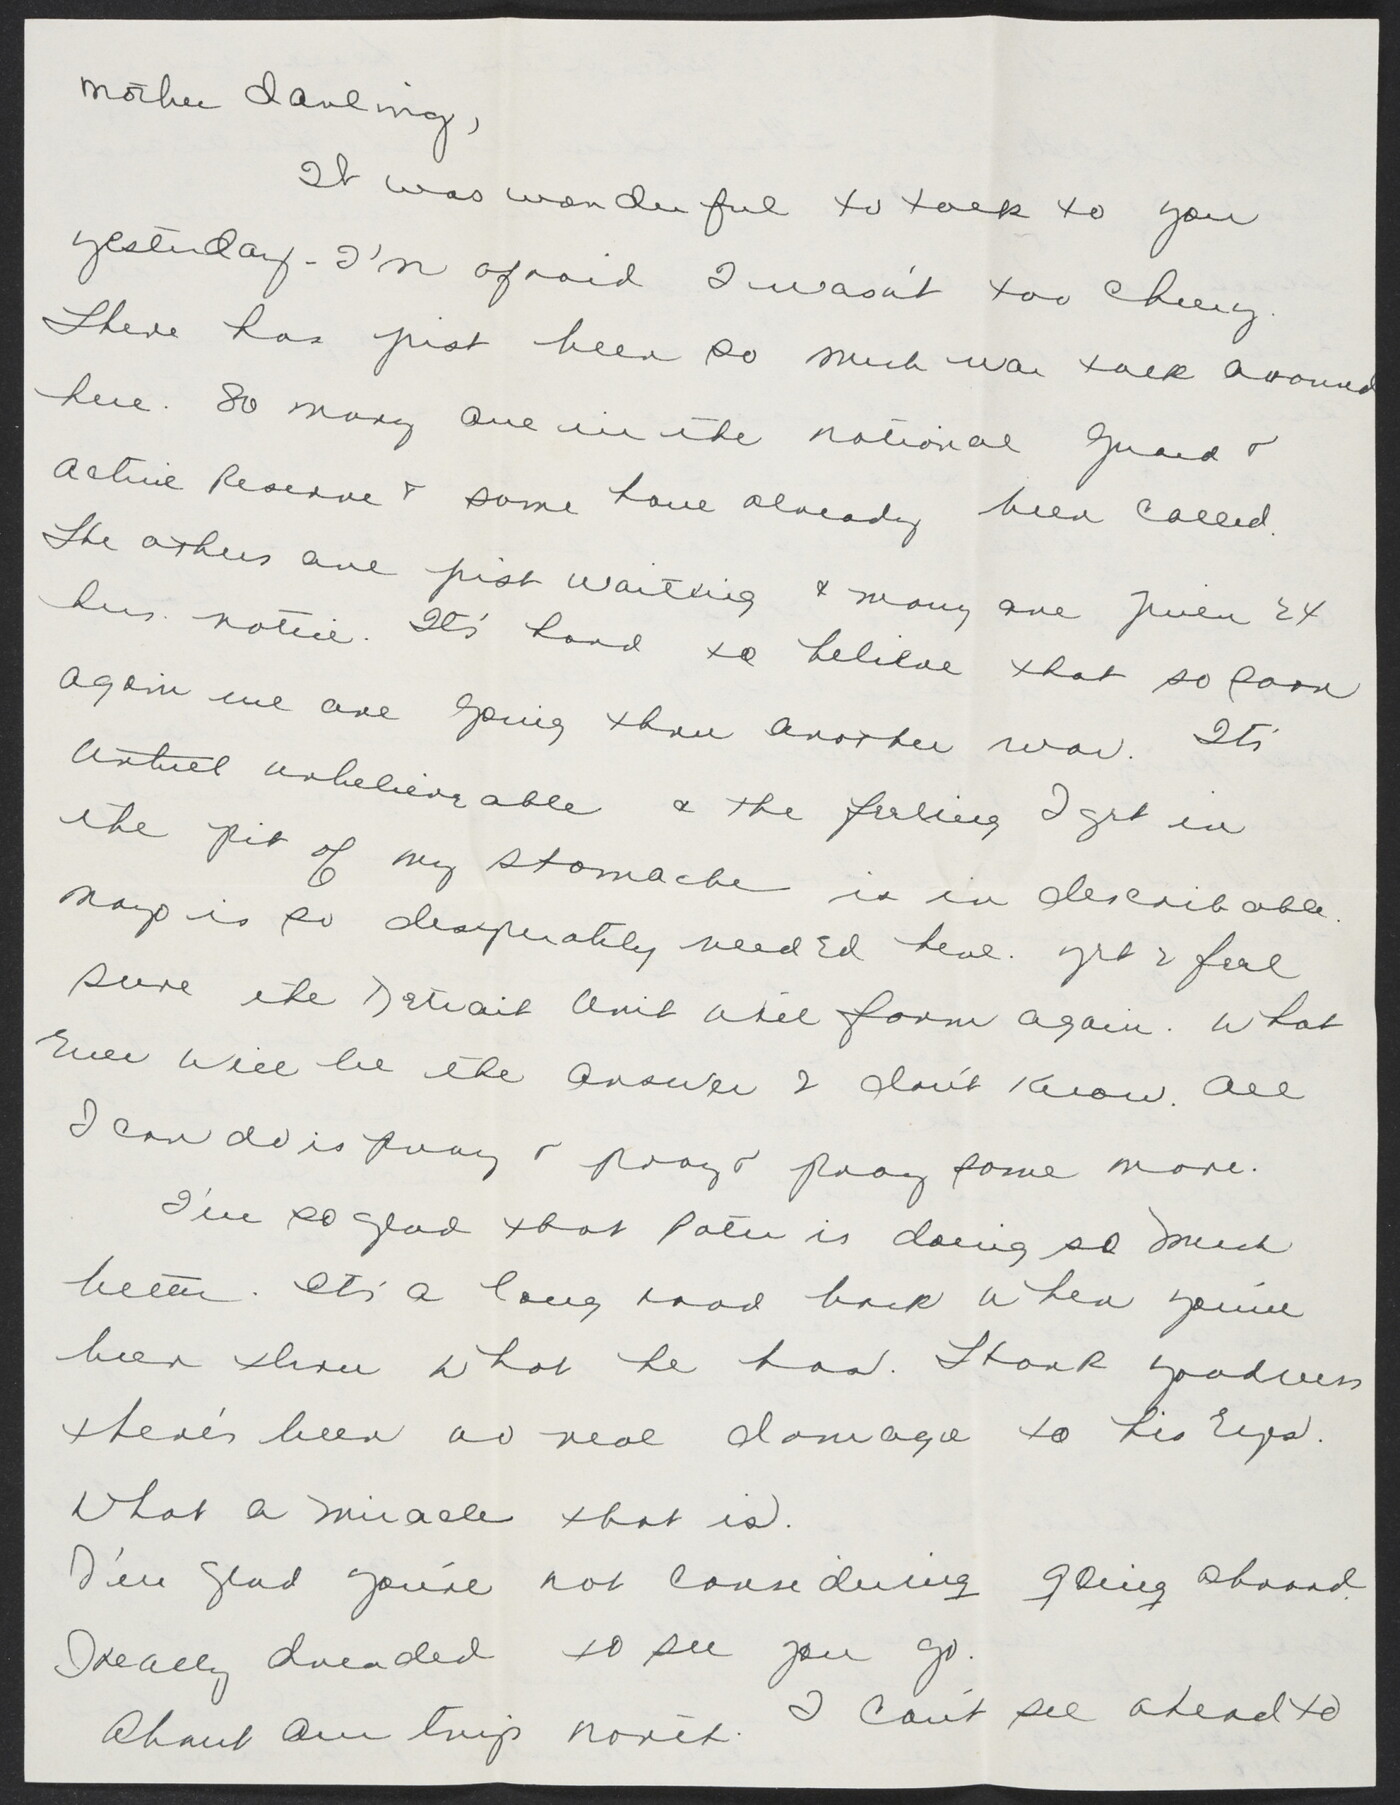 Mother darling,
It was wonderful to talk to you
yesterday - I'm afraid I wasn't too cheery.
There has just been so much war talk around
here. So many are in the National Guard &
Active Reserve & some have already been called.
The others are just waiting & many are given 24
hrs. notice. It's hard to believe that so soon
again we are going thru another war. It's
unbelieveable & the feeling I get in
the pit of my stomache is in describable.
Mayo is so desperately needed here. Yet I feel
sure the Detroit Unit will form again. What
Ever will be the answer I don't know. All
I can do is pray & pray & pray some more.
I'm so glad that Peter is doing so much
better. It's a long road back when you've
been thru what he has. Thank goodness
there's been no real damage to his Eyes.
What a miracle that is.
I'm glad you're not considering going abroad.
I really dreaded to see you go.
About our trip north. I can't see ahead to